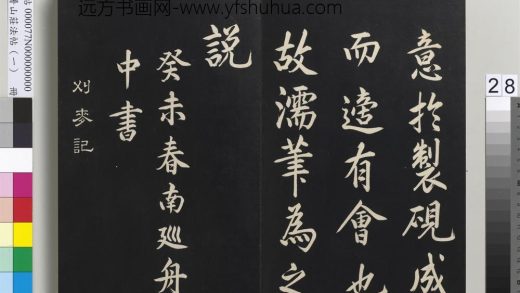 远方书画网-www.yfshuhua.com
意於製硯成
而適有會也
故濡筆為之
説
癸未春南廵舟
中書
刈麥記
000077N000000000
山莊法帖(一) 冊
28